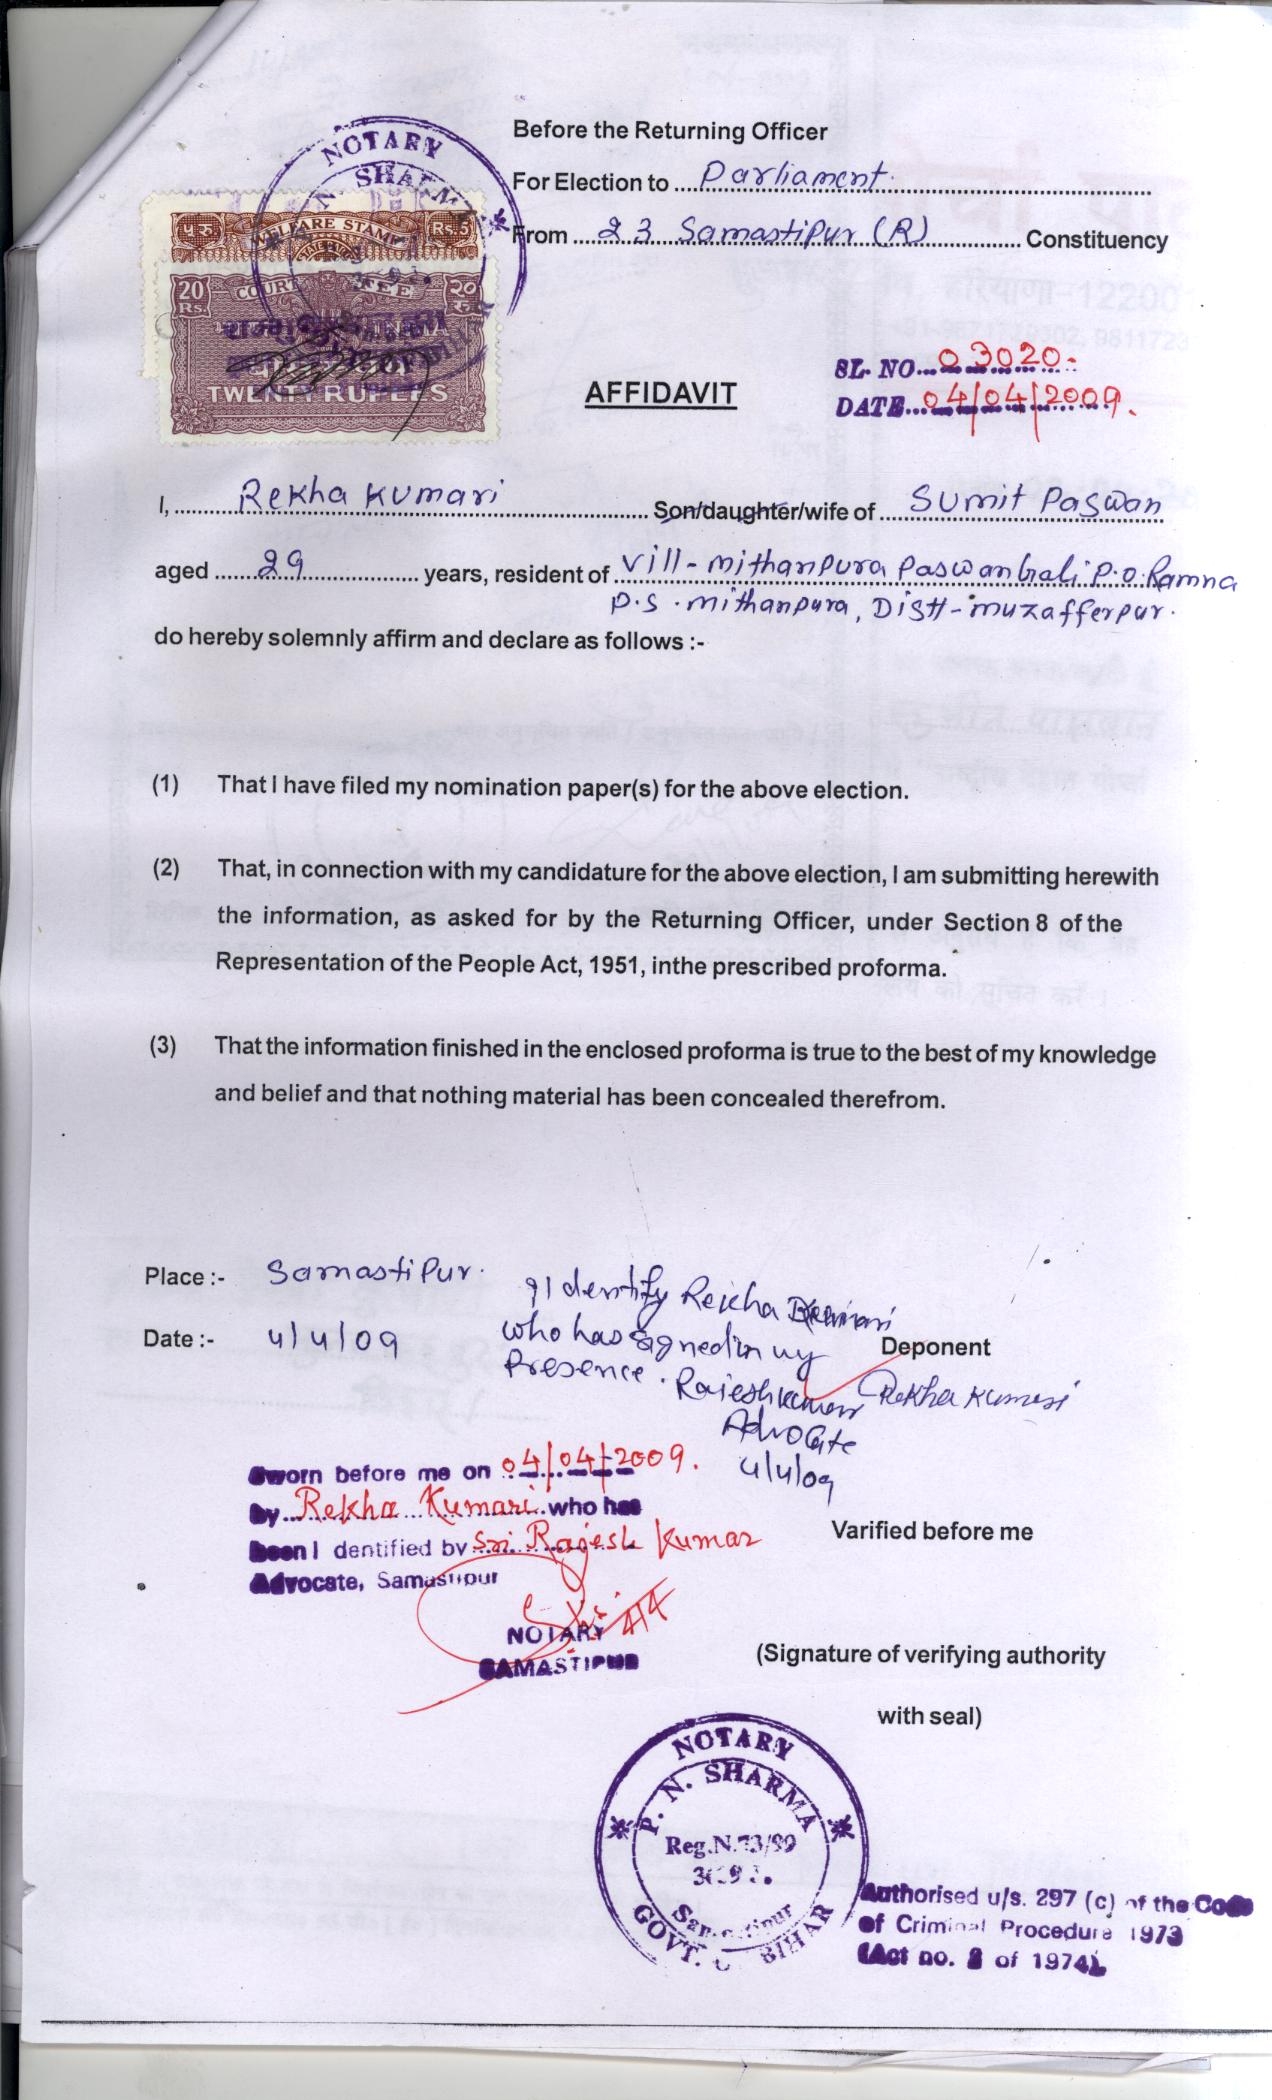 Before the Returning Officer
For Election to Parliament.
From 23 Samastipur (R) Constituency
NOTARY
N. SHARMA
५ रु. WELFARE STAMP Rs.5
20 Rs. COURT FEE २० रु
INDIA
TWENTY RUPEES
SL. NO. 03020.
AFFIDAVIT
DATE 04/04/2009.
I, Rekha Kumari Son/daughter/wife of Sumit Paswan
aged 29 years, resident of Vill- Mithanpura Paswan Gali P.O. Ramna
P.S. Mithanpura, Distt- Muzafferpur.
do hereby solemnly affirm and declare as follows :-
(1) That I have filed my nomination paper(s) for the above election.
(2) That, in connection with my candidature for the above election, I am submitting herewith
the information, as asked for by the Returning Officer, under Section 8 of the
Representation of the People Act, 1951, inthe prescribed proforma.
(3) That the information finished in the enclosed proforma is true to the best of my knowledge
and belief and that nothing material has been concealed therefrom.
Place :- Samastipur.
I Identify Rekha Kumari
Date :- 4/4/09
who has signed in my
Deponent
Presence. Rajesh Kumar
Rekha Kumari
Advocate
4/4/09
Sworn before me on 04/04/2009.
by Rekha Kumari who has
been I dentified by Sri Rajesh Kumar
Advocate, Samastipur
Varified before me
4/4
NOTARY
SAMASTIPUR
(Signature of verifying authority
with seal)
NOTARY
P. N. SHARMA
Reg.N.73/99
Samastipur
GOVT. OF BIHAR
Authorised u/s. 297 (c) of the Code
of Criminal Procedure 1973
(Act no. 2 of 1974).